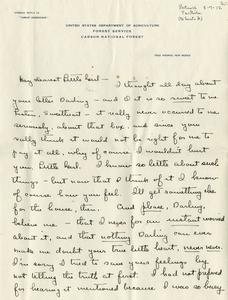 UNITED STATES DEPARTMENT OF AGRICULTURE
FOREST SERVICE
CARSON NATIONAL FOREST
My dearest Little Girl - I thought all day about
your letter Darling - and it is so sweet to me
sweetheart - it really never occurred to me
seriously, about that box, and since you
really think it would not be right for me to
pay it all, why, of course I wouldn't hurt
you, Little Girl. I know so little about such
things, - but now that I think of it I know
of course how you feel. I'll get something
for the house, then. And please, Darling,
believe me - that I never for an instant worried
about it, and that nothing Darling can ever
make me doubt your true little heart, never never.
I'm sorry I tried to save your feelings by
not telling the truth at first. I had not prepared
for hearing it mentioned because I was so busy